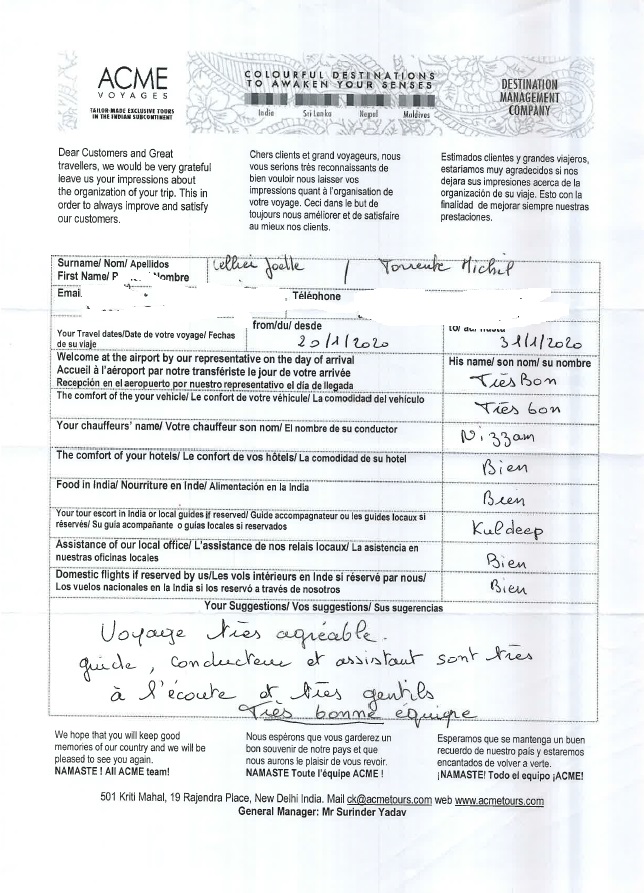 ACME
VOYAGES
TAILOR-MADE EXCLUSIVE TOURS
IN THE INDIAN SUBCONTINENT
COLOURFUL DESTINATIONS
TO AWAKEN YOUR SENSES
India Sri Lanka Nepal Maldives
DESTINATION
MANAGEMENT
COMPANY
Dear Customers and Great
travellers, we would be very grateful
leave us your impressions about
the organization of your trip. This in
order to always improve and satisfy
our customers.
Chers clients et grand voyageurs, nous
vous serions très reconnaissants de
bien vouloir nous laisser vos
impressions quant à l'organisation de
votre voyage. Ceci dans le but de
toujours nous améliorer et de satisfaire
au mieux nos clients.
Estimados clientes y grandes viajeros,
estariamos muy agradecidos si nos
dejara sus impresiones acerca de la
organización de su viaje. Esto con la
finalidad de mejorar siempre nuestras
prestaciones.
Surname/ Nom/ Apellidos
First Name/ Nombre
Joëlle / Torrente Michel
Email.
Téléphone
Your Travel dates/Date de votre voyage/ Fechas
de su viaje
from/du/ desde
20/1/2020
31/1/2020
Welcome at the airport by our representative on the day of arrival
Accueil à l'aéroport par notre transfériste le jour de votre arrivée
Recepción en el aeropuerto por nuestro representativo el dia de llegada
His name/ son nom/ su nombre
Très Bon
The comfort of the your vehicle/ Le confort de votre véhicule/ La comodidad del vehículo
Très bon
Your chauffeurs' name/ Votre chauffeur son nom/ El nombre de su conductor
Nizzam
The comfort of your hotels/ Le confort de vos hôtels/ La comodidad de su hotel
Bien
Food in India/ Nourriture en Inde/ Alimentación en la India
Bien
Your tour escort in India or local guides if reserved/ Guide accompagnateur ou les guides locaux si
réservés/ Su guia acompañante o guías locales si reservados
Kuldeep
Assistance of our local office/ L'assistance de nos relais locaux/ La asistencia en
nuestras oficinas locales
Bien
Domestic flights if reserved by us/Les vols intérieurs en Inde si réservé par nous/
Los vuelos nacionales en la India si los reservó a través de nosotros
Bien
Your Suggestions/ Vos suggestions/ Sus sugerencias
Voyage très agréable.
guide, conducteur et assistant sont très
à l'écoute et très gentils
Très bonne équipe
We hope that you will keep good
memories of our country and we will be
pleased to see you again.
NAMASTE ! All ACME team!
Nous espérons que vous garderez un
bon souvenir de notre pays et que
nous aurons le plaisir de vous revoir.
NAMASTE Toute l'équipe ACME !
Esperamos que se mantenga un buen
recuerdo de nuestro país y estaremos
encantados de volver a verte.
¡NAMASTE! Todo el equipo ¡ACME!
501 Kriti Mahal, 19 Rajendra Place, New Delhi India. Mail ck@acmetours.com web www.acmetours.com
General Manager: Mr Surinder Yadav